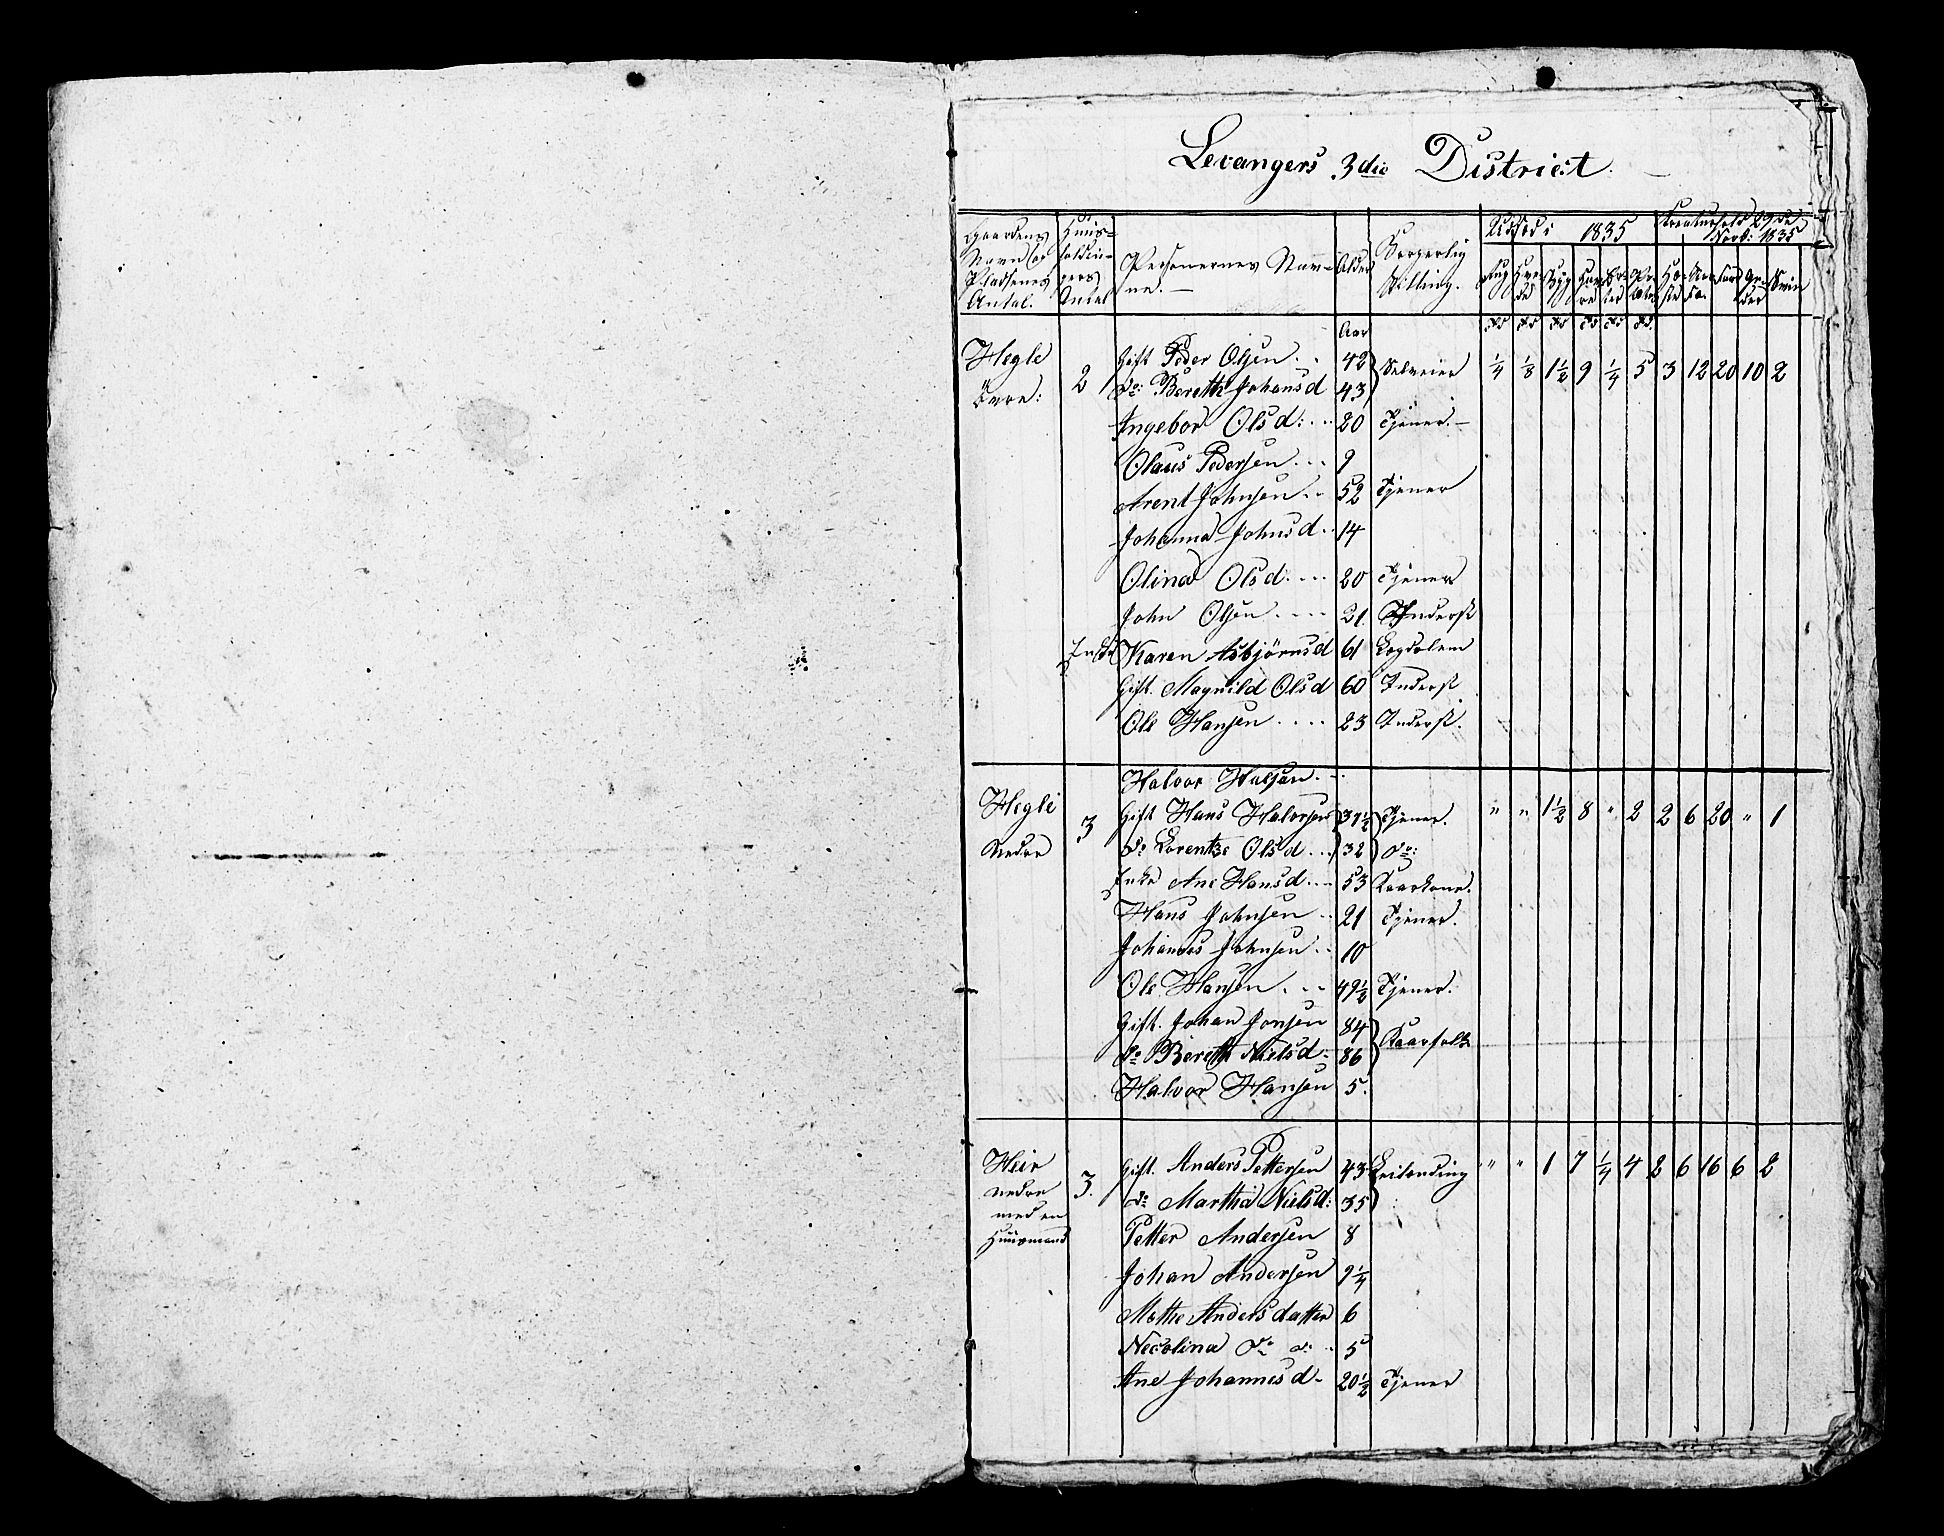 Levangers 3die District.
Gaardens Navn og Pladsenes Antal. Huus-holdnin-gers Antal Personernes Nav-ne. Alder Borgerlig Stilling. Udsæd i 1835 Kreaturhold 29de Novb: 1835
Rug Hve-de Byg Hav-re Er-ter Po-teter He-ste Faar Svin
Aar
Hegle 2 Gift Peder Olsen 42 Selveier 1/4 1/8 1 1/2 9 1/4 5 3 12 20 10 2
övre: do: Bereth Johansd 43
Ingebor Olsd: 20 Tjener.
Olaus Pedersen 9
Arent Johnsen 52 Tjener
Johanna Johnsd 14
Olina Olsd 20 Tjener
John Olsen 21 Indersk
Enke Karen Asbjörnsd 61 Logdslem
Gift. Magnild Olsd 60 Indersk
Ole Hansen 23 Indersk.
Halvor Halsen.
Hegle 3 Gift Hans Halvorsen 37 1/2 Tjener. " " 1 1/2 8 " 2 2 6 20 " 1
Nedre do Lorentze Olsd 32 do:
Enke Ane Hansd 53 Kaarkone.
Hans Johnsen 21 Tjener.
Johannes Johnsen 10
Ole Hansen 49 1/2 Tjener.
Gift. Johan Jonsen 84 Kaarfolk
do Bereth Nielsd 86
Halvor Hansen 5.
Heir 3. Gift. Anders Pettersen 43 Leilænding " " 1 7 1/4 4 2 6 16 6 2
nedre do Martha Nielsd: 35
med en Petter Andersen 8
Huusmand
Johan Andersen 9 1/4
Mette Andersdatter 6
Necolina do do 5
Ane Johannesd 20 1/2 Tjener